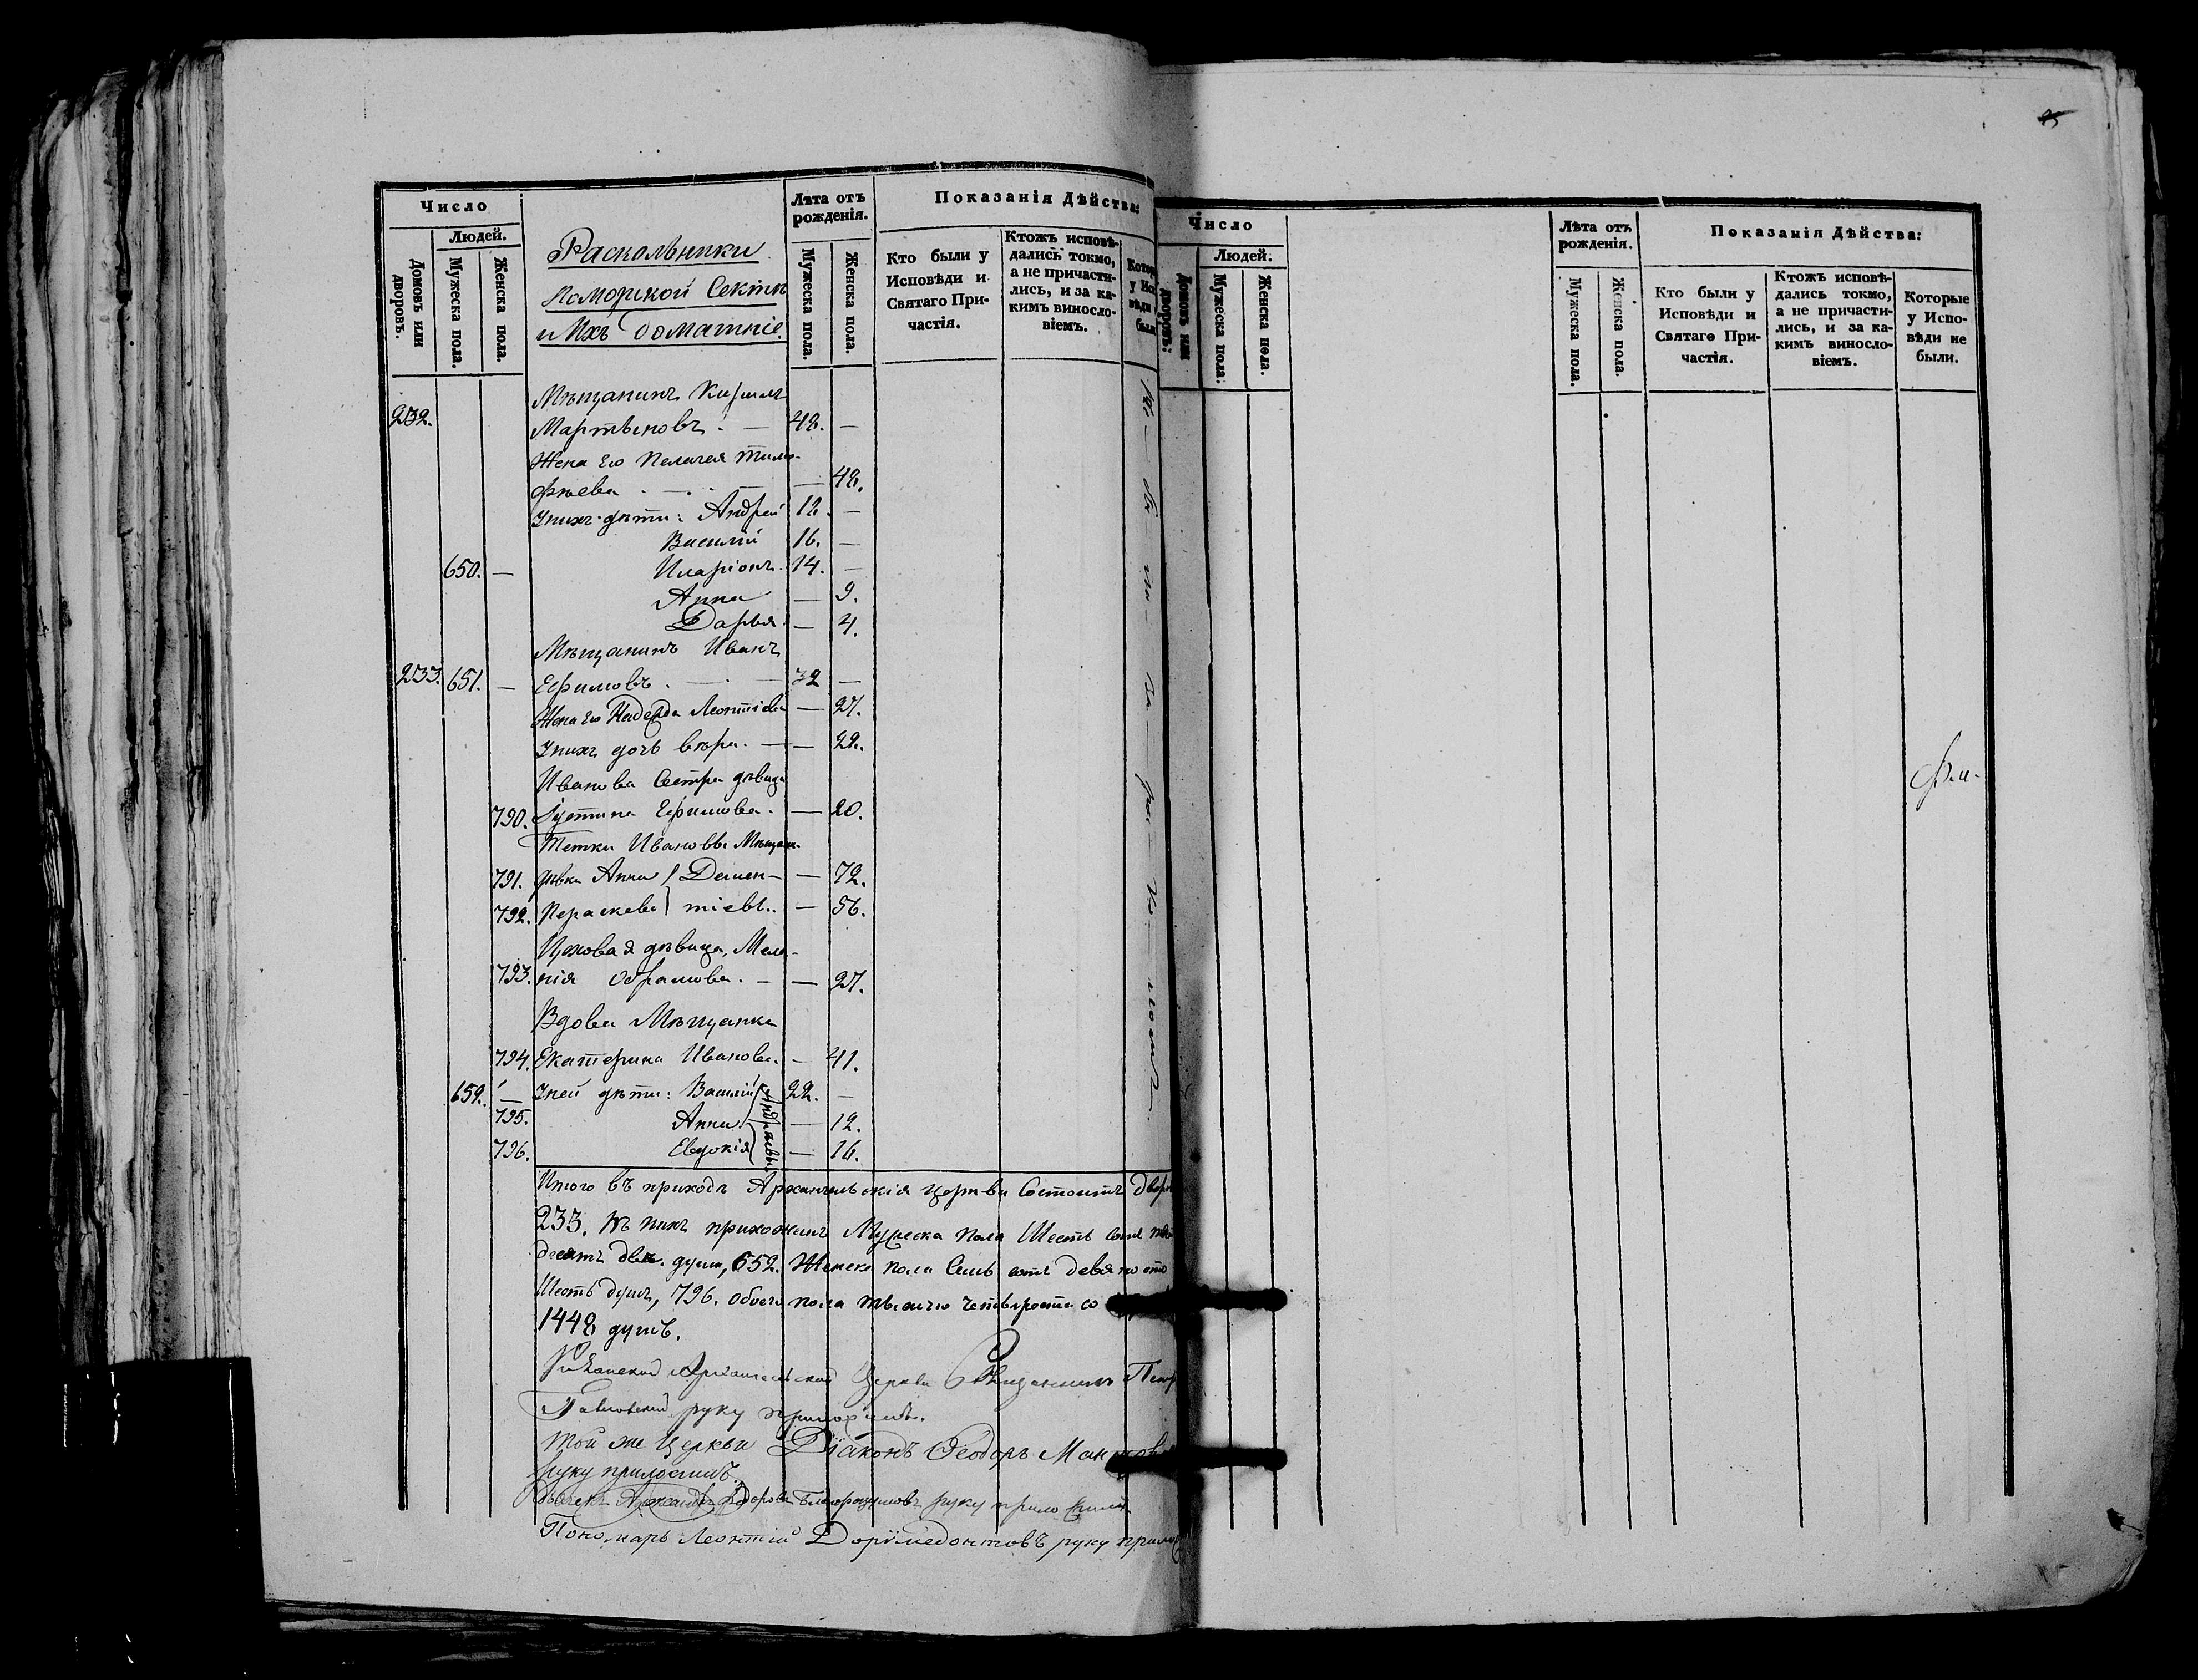 Число
Людей.
Домовъ или дворовъ.
Мужеска пола.
Женска пола.
Раскольники
Поморской Секты
и Ихъ домашніе.
Лѣта отъ рожденія.
Мужеска пола.
Женска пола.
Показанія Дѣйства:
Кто были у
Исповѣди и
Святаго При-
частія.
Ктожъ исповѣ-
дались токмо,
а не причасти-
лись, и за ка-
кимъ винсло-
віемъ.
Котор
у Исп
вѣди
был
Мѣщанинъ Кирилъ
232. Мартыновъ. — 48. —
Жена Его Пелагея Тимо-
фѣева — — 48.
У нихъ дѣти: Андрей 18. —
Василій 16. —
650. — Иларіонъ. 14. —
Анна — 9.
Дарья. — 4.
Мѣщанинъ Иванъ
233. 651. — Ефимовъ. — 32 —
Жена Его Надежда Леонтіева — 27.
У нихъ дочь Вѣра. — — 22.
Иванова Сестра дѣвица
790. Іустина Ефимова. — 20.
Тетки Ивановы Мѣщан.
791. дѣвки Анна } Демен- — 72.
792. Параскева } тіевы. — 56.
Цѣховая дѣвица, Мела-
793. нія Абрамова. — — 27.
Вдова Мѣщанка
794. Екатерина Иванова. — 41.
652. — У ней дѣти: Василій 22. —
795. Анна — 12.
796. Евдокія — 16.
Андреевы
Итого въ приходѣ Архангельскія церкви Состоитъ двор
233. въ нихъ прихожанъ Мужеска пола Шесть сотъ пять
десятъ двѣ. души, 652. Женска пола Семь сотъ девяносто
Шесть душъ, 796. обоего пола тысячу четыреста со
1448 душъ.
Архангельской Церкви Священникъ Петр
Павловский руку приложилъ.
Той же Церкви Діаконъ Ѳеодоръ
руку приложилъ.
Дьячекъ Ѳедоровъ Благоразумовъ руку приложилъ
Пономарь Леонтій Доримедонтовъ руку прилож
Число
Людей.
Домовъ или дворовъ:
Мужеска пола.
Женска пола.
Лѣта отъ рожденія.
Мужеска пола.
Женска пола.
Показанія Дѣйства:
Кто были у
Исповѣди и
Святаго При-
частія.
Ктожъ исповѣ-
дались токмо,
а не причасти-
лись, и за ка-
кимъ винсло-
віемъ.
Которые
у Испо-
вѣди не
были.